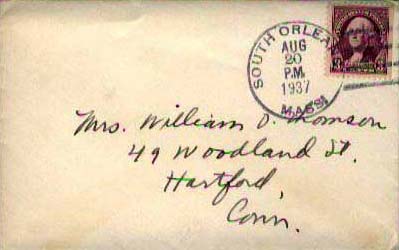 SOUTH ORLEA
AUG
20
P.M.
1937
MASS.
3 3
Mrs. William D. Thomson
49 Woodland St.
Hartford,
Conn.